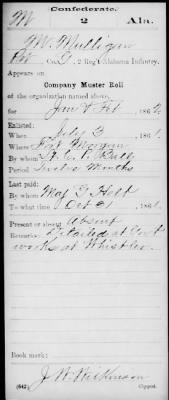 Confederate.
M 2 Ala.
M. Mulligan
Pvt, Co. I, 2 Reg't Alabama Infantry.
Appears on
Company Muster Roll
of the organization named above,
for Jan & Feb, 1862.
Enlisted:
When July 3, 1861.
Where Fort Morgan
By whom Lt. C. P. Ball
Period Twelve Months
Last paid:
By whom Maj. G. Holt
To what time Oct 31, 1861.
Present or absent Absent
Remarks: Detailed at Govt
works at Whistler
Book mark:
J W Wilkinson
(642) Copyist.